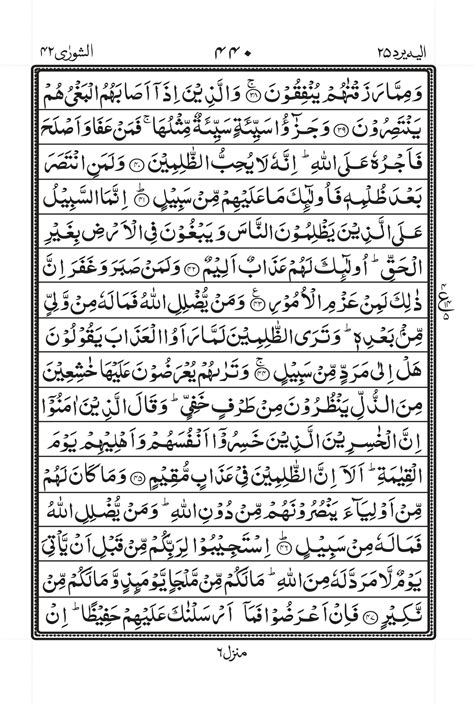 الیه یرد ۲۵ ۴۴۰ الشورٰی ۴۲
وَمِمَّا رَزَقْنٰهُمْ یُنْفِقُوْنَ ﴿۳۸﴾ وَالَّذِیْنَ اِذَاۤ اَصَابَهُمُ الْبَغْیُ هُمْ
یَنْتَصِرُوْنَ ﴿۳۹﴾ وَجَزٰٓؤُا سَیِّئَةٍ سَیِّئَةٌ مِّثْلُهَا ۚ فَمَنْ عَفَا وَاَصْلَحَ
فَاَجْرُهٗ عَلَی اللّٰهِ ؕ اِنَّهٗ لَا یُحِبُّ الظّٰلِمِیْنَ ﴿۴۰﴾ وَلَمَنِ انْتَصَرَ
بَعْدَ ظُلْمِهٖ فَاُولٰٓئِكَ مَا عَلَیْهِمْ مِّنْ سَبِیْلٍ ؕ ﴿۴۱﴾ اِنَّمَا السَّبِیْلُ
عَلَی الَّذِیْنَ یَظْلِمُوْنَ النَّاسَ وَیَبْغُوْنَ فِی الْاَرْضِ بِغَیْرِ
الْحَقِّ ؕ اُولٰٓئِكَ لَهُمْ عَذَابٌ اَلِیْمٌ ﴿۴۲﴾ وَلَمَنْ صَبَرَ وَغَفَرَ اِنَّ
ذٰلِكَ لَمِنْ عَزْمِ الْاُمُوْرِ ﴿۴۳﴾ وَمَنْ یُّضْلِلِ اللّٰهُ فَمَا لَهٗ مِنْ وَّلِیٍّ
مِّنْۢ بَعْدِهٖ ؕ وَتَرَی الظّٰلِمِیْنَ لَمَّا رَاَوُا الْعَذَابَ یَقُوْلُوْنَ
هَلْ اِلٰی مَرَدٍّ مِّنْ سَبِیْلٍ ﴿۴۴﴾ وَتَرٰىهُمْ یُعْرَضُوْنَ عَلَیْهَا خٰشِعِیْنَ
مِنَ الذُّلِّ یَنْظُرُوْنَ مِنْ طَرْفٍ خَفِیٍّ ؕ وَقَالَ الَّذِیْنَ اٰمَنُوْۤا
اِنَّ الْخٰسِرِیْنَ الَّذِیْنَ خَسِرُوْۤا اَنْفُسَهُمْ وَاَهْلِیْهِمْ یَوْمَ
الْقِیٰمَةِ ؕ اَلَاۤ اِنَّ الظّٰلِمِیْنَ فِیْ عَذَابٍ مُّقِیْمٍ ﴿۴۵﴾ وَمَا كَانَ لَهُمْ
مِّنْ اَوْلِیَآءَ یَنْصُرُوْنَهُمْ مِّنْ دُوْنِ اللّٰهِ ؕ وَمَنْ یُّضْلِلِ اللّٰهُ
فَمَا لَهٗ مِنْ سَبِیْلٍ ؕ ﴿۴۶﴾ اِسْتَجِیْبُوْا لِرَبِّكُمْ مِّنْ قَبْلِ اَنْ یَّاْتِیَ
یَوْمٌ لَّا مَرَدَّ لَهٗ مِنَ اللّٰهِ ؕ مَا لَكُمْ مِّنْ مَّلْجَاٍ یَّوْمَئِذٍ وَّمَا لَكُمْ مِّنْ
نَّكِیْرٍ ﴿۴۷﴾ فَاِنْ اَعْرَضُوْا فَمَاۤ اَرْسَلْنٰكَ عَلَیْهِمْ حَفِیْظًا ؕ اِنْ
منزل ۶